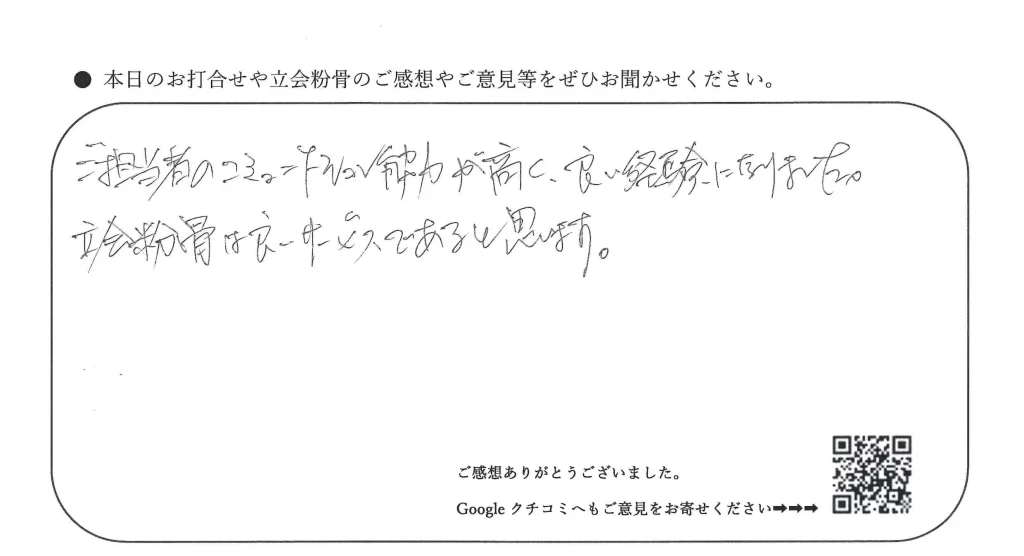 ● 本日のお打合せや立会粉骨のご感想やご意見等をぜひお聞かせください。
ご担当者のコミュニケーション能力が高く、良い経験になりました。
立会粉骨は良いサービスであると思います。
ご感想ありがとうございました。
Google クチコミへもご意見をお寄せください➡➡➡